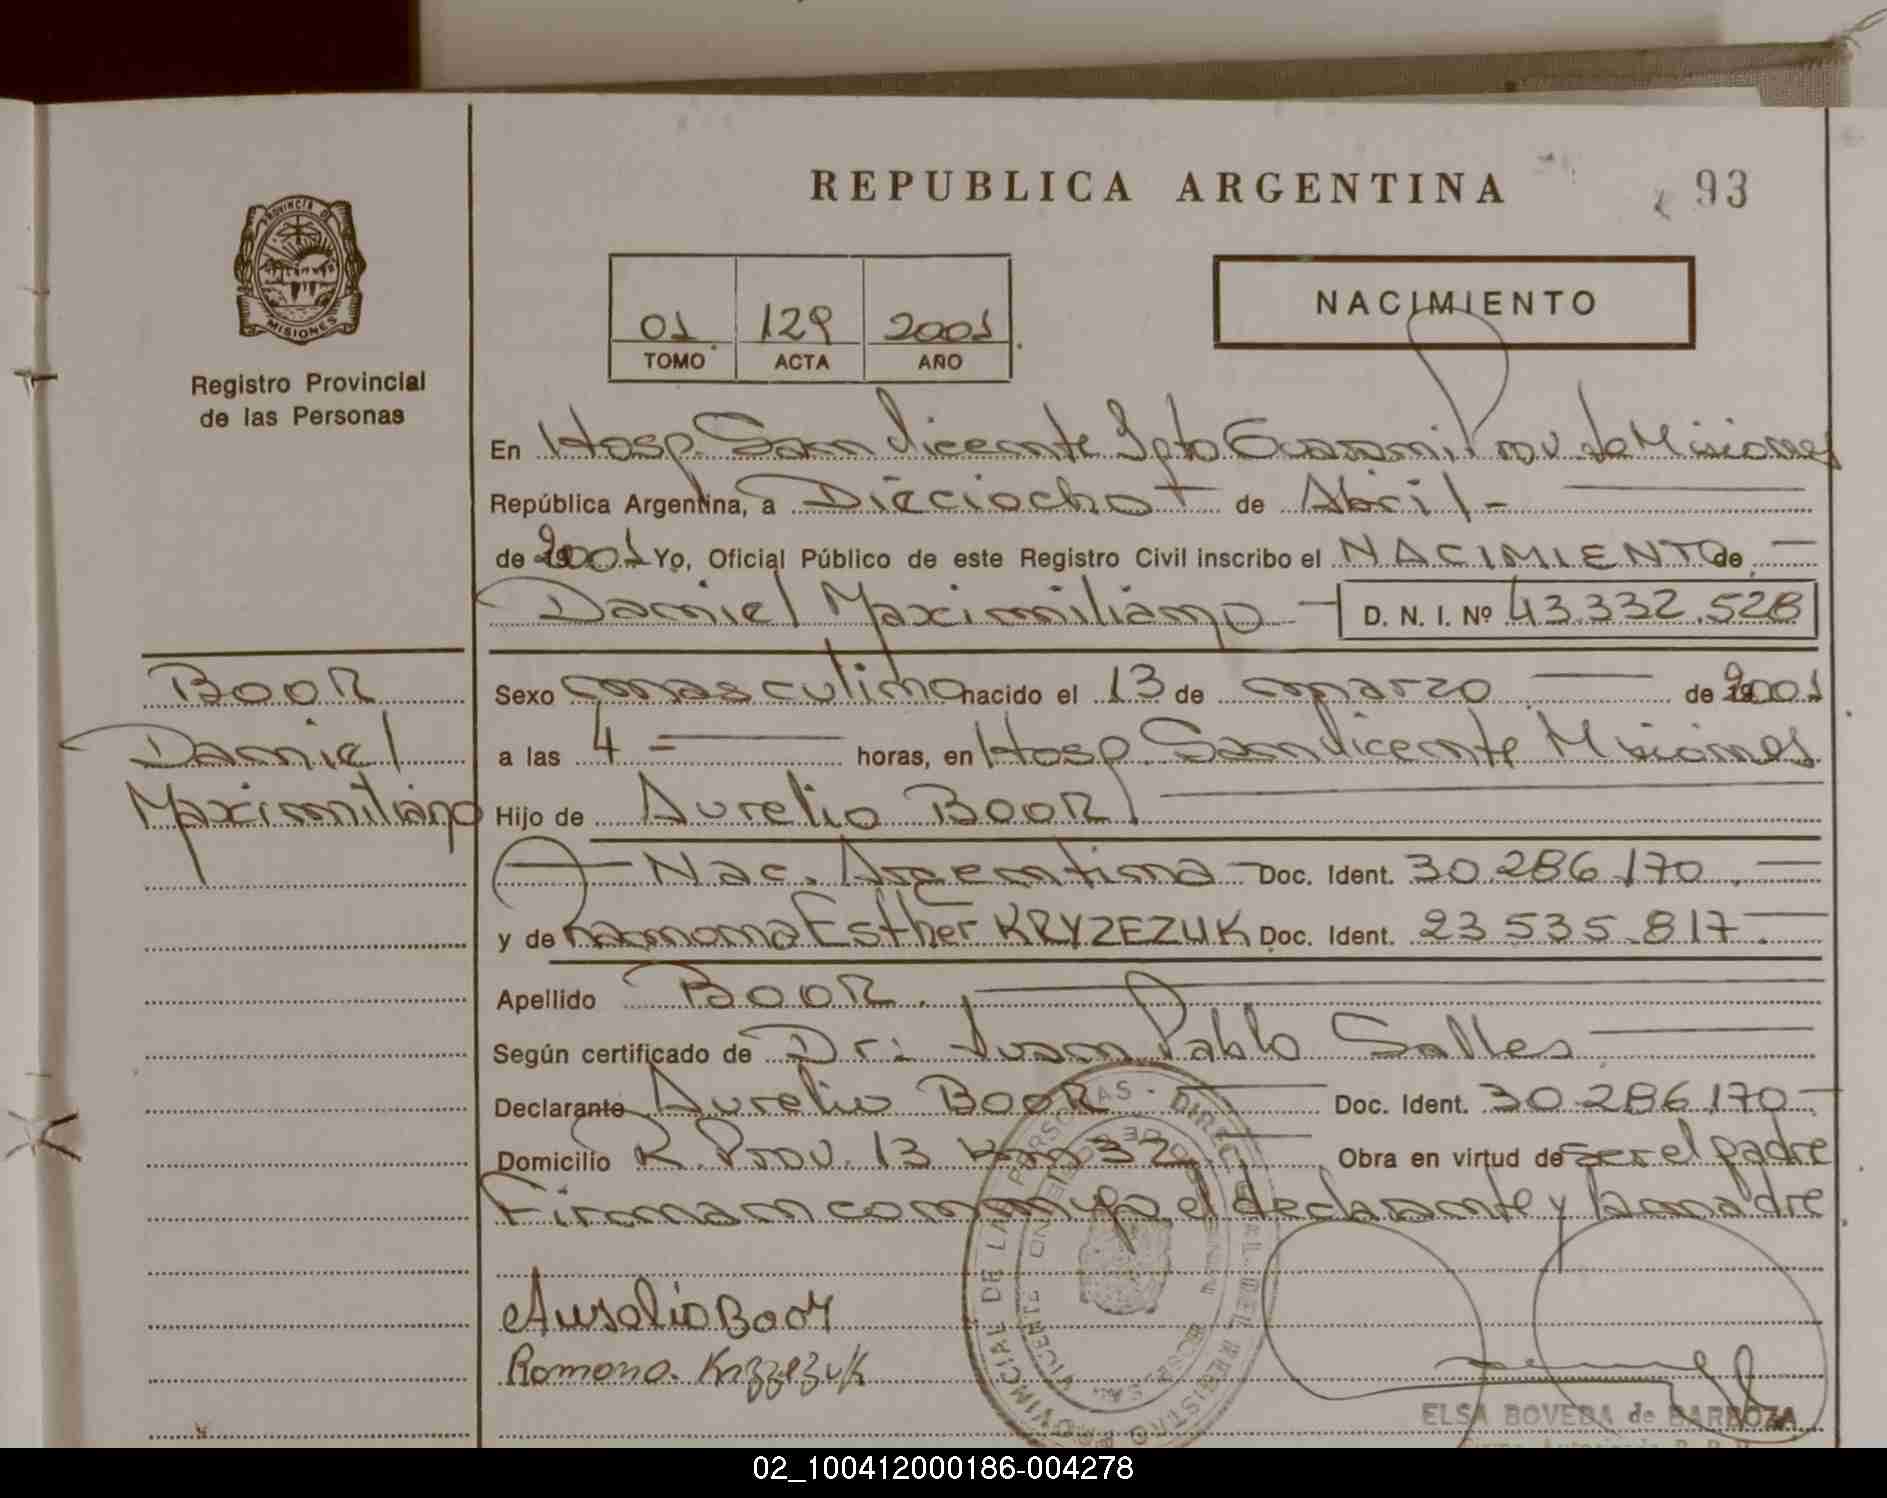 REPUBLICA ARGENTINA
93
PROVINCIA DE
MISIONES
Registro Provincial
de las Personas
01 129 2001
TOMO ACTA AÑO
NACIMIENTO
En Hosp. San Vicente Dpto Guarani Prov. de Misiones
República Argentina, a Dieciocho de Abril -
de 2001 Yo, Oficial Público de este Registro Civil inscribo el NACIMIENTO de
Daniel Maximiliano D. N. I. Nº 43.332.528
BOOR
Daniel
Maximiliano
Sexo masculino nacido el 13 de marzo de 2001
a las 4 = horas, en Hosp. San Vicente Misiones
Hijo de Aurelio BOOR
Nac. Argentina Doc. Ident. 30.286.170
y de Ramona Esther KRYZEZUK Doc. Ident. 23.535.817
Apellido BOOR.
Según certificado de Dr: Juan Pablo Salles
Declarante Aurelio BOOR Doc. Ident. 30.286.170
Domicilio R. Prov. 13 Km 32 Obra en virtud de ser el padre
Firman conmigo el declarante y la madre
Aurelio Boor
Romona. Krizzezuk
ELSA BOVEDA de BARBOZA
02_100412000186-004278